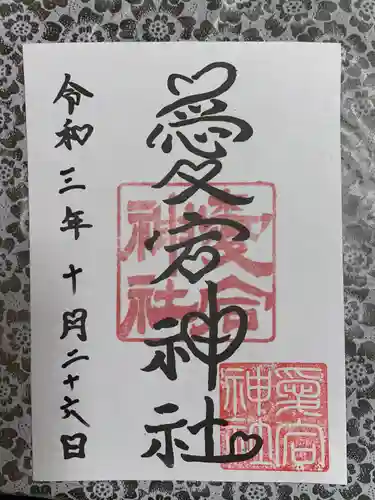 愛宕神社
令和三年十月二十六日
愛宕神社
愛宕神社